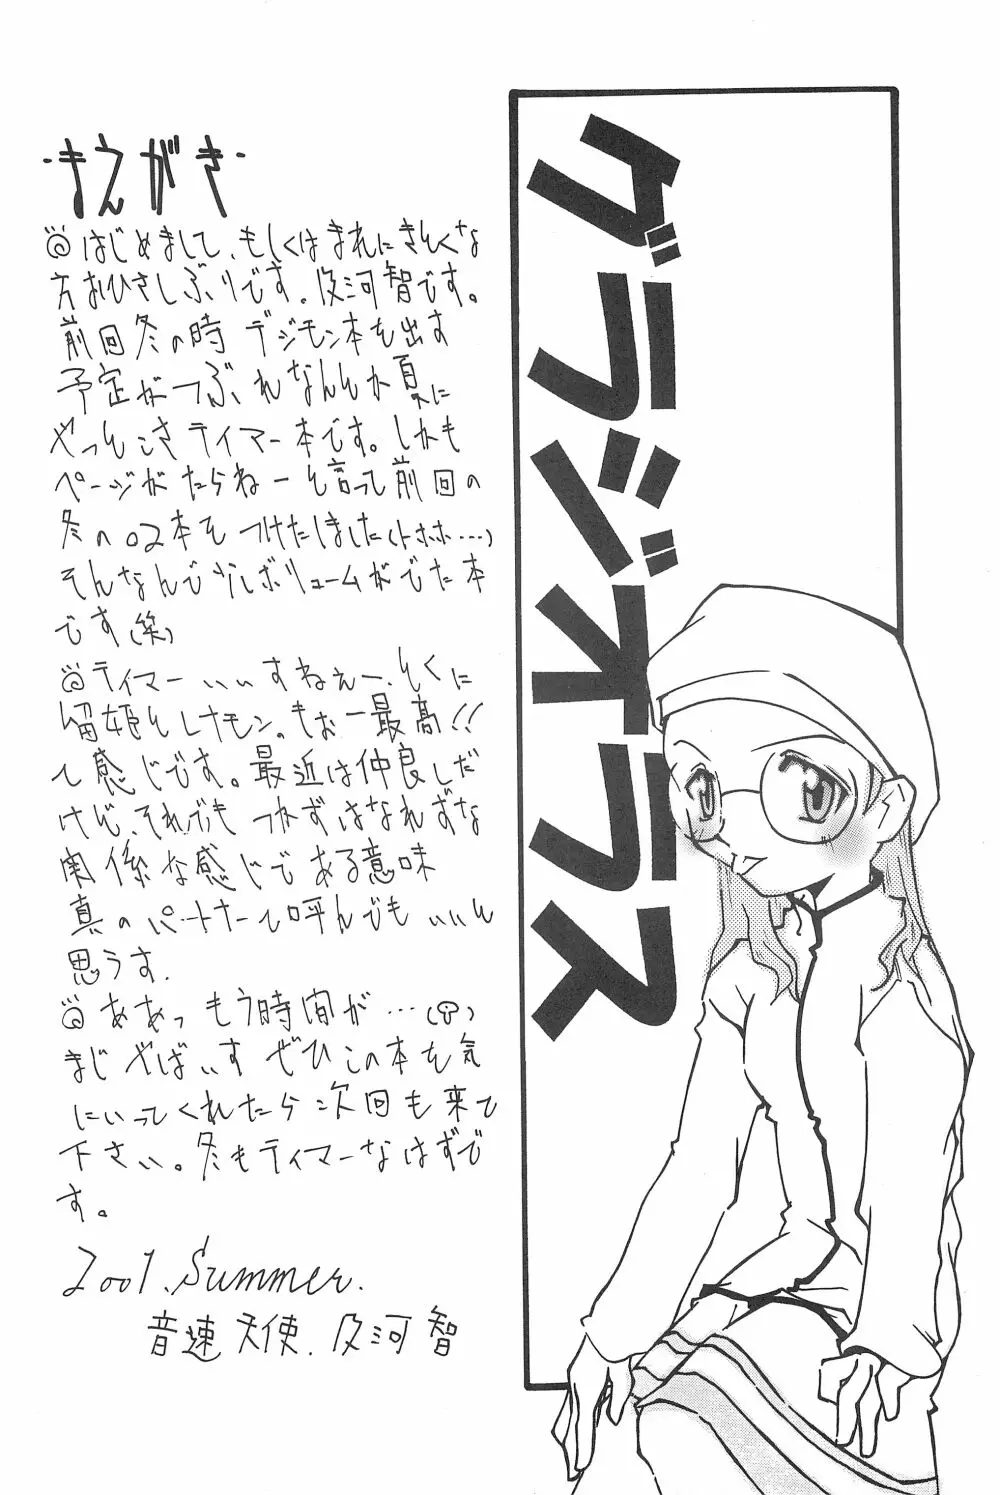 グラジオラス
・まえがき・
◎はじめまして、もしくはまれにきとくな
方おひさしぶりです。及河智です。
前回冬の時デジモン本を出す
予定がつぶれなんとか夏に
やっとこさテイマー本です。しかも
ページがたらねーと言って前回の
冬の02本をつけたしました(トホホ…)
そんなんで少しボリュームがでた本
です(笑)
◎テイマーいいすねぇー、とくに
留姫とレナモン。もぉー最高!!
て感じです。最近は仲良しだ
けど、それでもつかずはなれずな
関係な感じである意味
真のパートナーて呼んでもいいと
思うす.
◎ああっもう時間が…
まじやばいす ぜひこの本を気
にいってくれたら次回も来て
下さい。冬もテイマーなはずで
す。
2001.Summer.
音速天使.及河智